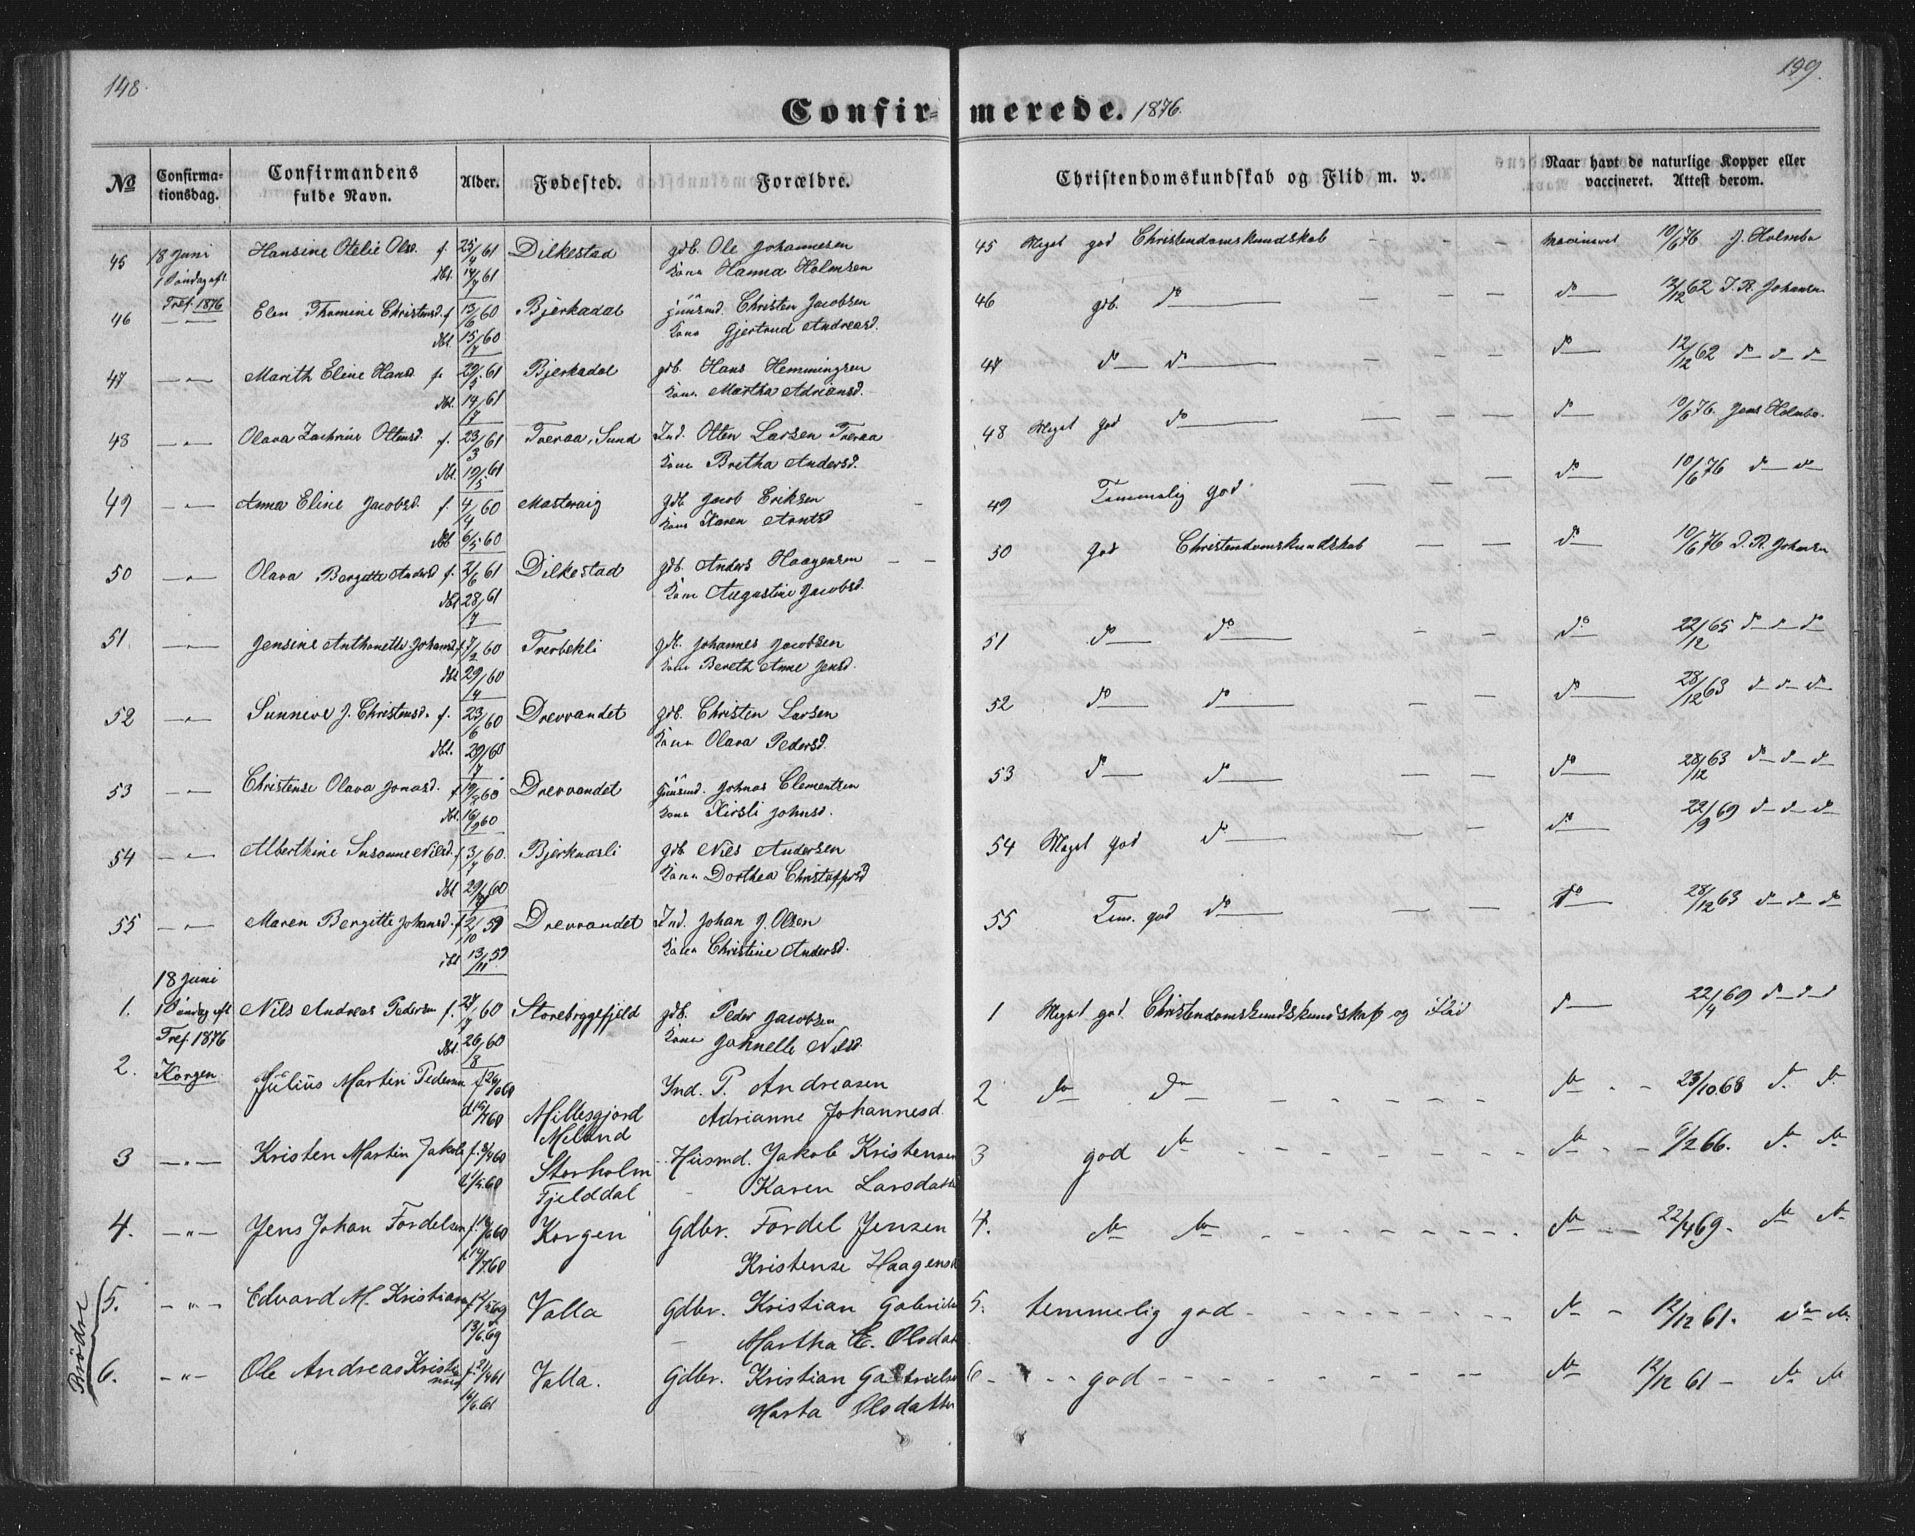 148.
149.
Confirmerede. 1876.
No
Confirmationsdag.
Confirmandens fulde Navn.
Alder.
Fødested.
Forældre.
Christendomskundskab og Flid m. v.
Naar havt de naturlige Kopper eller vaccineret. Attest derom.
45 18 Juni Hansine Otelie Ols. f. 25/4 61 Dilkestad gdb. Ole Johannesen 45 Meget god Christendomskundskab — — — 10/6 76 J. Holmbo
1 Søndag eft. dbt. 14/7 61 Kone Hanna Holmsen
Tref. 1876
46 — " — Elen Thomine Christensd. f. 13/6 60 Bjerkadal Huusmd. Christen Jacobsen 46 gdb. do — do — 12/12 62 J. R. Johansen
dbt. 15/7 60 Kone Gjertrud Andreasd.
47 — " — Marith Eline Hansd. f. 29/5 61 Bjerkadal gdb. Hans Hemmingsen 47 do — do — do — 12/12 62 do do do
dbt. 14/7 61 Kone Martha Adriansd.
48 — " — Olava Zachrine Ottensd. f. 23/3 61 Tveraa, Sund Ind. Otten Larsen Tveraa 48 Meget god do — do — 10/6 76. Jens Holmbo.
dbt. 19/5 61 Kone Bretha Andersd.
49 — " — Anna Eline Jacobsd. f. 4/4 60 Mastervig gdb. Jacob Eriksen 49 Temmelig god do — 10/6 76 do do
dbt 6/5 60 Kone Karen Arntsd
50 — " — Olava Bergitte Andersd f. 2/6 61 Dilkestad gdb. Anders Haagensen 50 god Christendomskundskab — — do — 10/6 76 J. R. Johansen
dbt 28/7 61 Kone Augustine Jacobsd.
51. — " — Jensine Anthonette Johansd. f. 7/2 60 Tverbekli gdb. Johannes Jacobsen 51 do — do — do — 22/12 65 do do do
dbt 29/4 60 Kone Bereth Anne Jensd.
52 — " — Sunneve J. Christensd. f. 23/6 60 Drevvandet gdb. Christen Larsen 52 do do — do — 28/12 63 do do do
dbt. 29/7 60 Kone Olava Pedersd.
53 — " — Christense Olava Jonasd. f. 19/8 60 Drevvandet Huusmd. Johnas Clementsen 53 do — do — do — 28/12 63 do do do
dbt. 16/9 60 Kone Kirsti Johnsd.
54 — " — Alberthine Susanne Nilsd. f. 3/7 60. Bjerknæsli gdb Nils Andersen 54 Meget god do — do — 22/9 69 do do do
dbt 29/7 60 Kone Dorthea Christoffersd
55 — " — Maren Bergitte Johansd. f. 2/10 59 Drevvandet Ind. Johan J. Olsen 55 Tem. god do — do — 28/12 63 do do do
dbt 13/11 59 Kone Christine Andersd.
18 Juni
1. 1 Søndag eft Nils Andreas Pedersen f. 24/7 60 Storebryggefjeld gdb. Peder Jacobsen 1 Meget god Christendomskundskundskab og Flid do — 22/4 69 do do
Tref. 1876 dbt. 26/8 60 Kone Johnelle Nilsd.
2. Korgen Julius Martin Pedersen f. 24/6 60 Ind. P. Andreasen 2 do do do 23/10 68 do do
d. 15/7 60 Millesgjord Adrianne Johannesd.
Miland
3 — " — Kristen Martin Jakobs f. 8/4 60 Storholm Husmd. Jakob Kristensen 3 god do do 9/12 66. do do
Fjelddal Karen Larsdatter
4. — " — Jens Johan Fordelsen Korgen Gdbr. Fordel Jensen 4. do do do 22/4 69. do do
Kristense Haagensd
5. — " — Edvard M. Kristian Valla Gdbr. Kristian Gabriels 5. temmelig god do 12/12 61. do do
13/6 69 Martha E. Olsdat
6. — " — Ole Andreas Kristi f. 21/4 61 Valla. Gdbr. Kristian Gabriels 6 god do 12/12 61 do do
16/6 61 Marta Olsdatter
Brødre